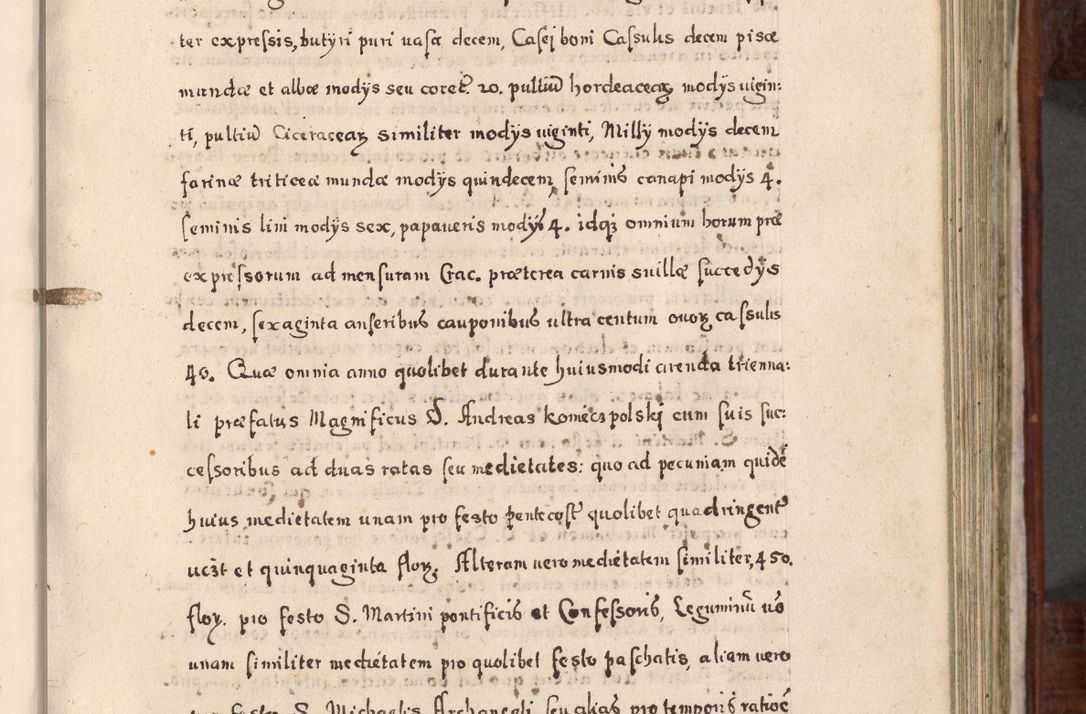 ter expressis, butyri puri uasa decem, Casei boni Cassulis decem pisæ
mundæ et albæ modÿs seu coret. 20. pultiū hordeaceaꝝ modÿs uigin:
ti, pultiū Ciceraceaꝝ similiter modÿs uiginti, Millÿ modÿs decem
farinæ triticeæ mundæ modÿs quindecem, seminis canapi modÿs 4.
seminis lini modÿs sex, papaueris modÿs 4. idqꝫ omnium horum præ
expressorum ad mensuram Crac. præterea carnis suillæ succedÿs
decem, sexaginta anseribus cauponibus ultra centum ouoꝝ cassulis
40. Quæ omnia anno quolibet durante huiusmodi arenda trienna:
li præfatus Magnificus D. Andreas koniecz polskj cum suis suc:
cessoribus ad duas ratas seu medietates: quo ad pecuniam quidē
huius medietatem unam pro festo pentecost quolibet quadringent
uczt et quinquaginta floꝝ. Alteram uero medietatem similiter, 450.
floꝝ. pro festo S. Martini pontificis et Confessoris, Leguminū uo
unam similiter medietatem pro quolibet festo paschatis, aliam uero
pro festo S. Michaelis Archangeli seu alias pro temporis ratioē